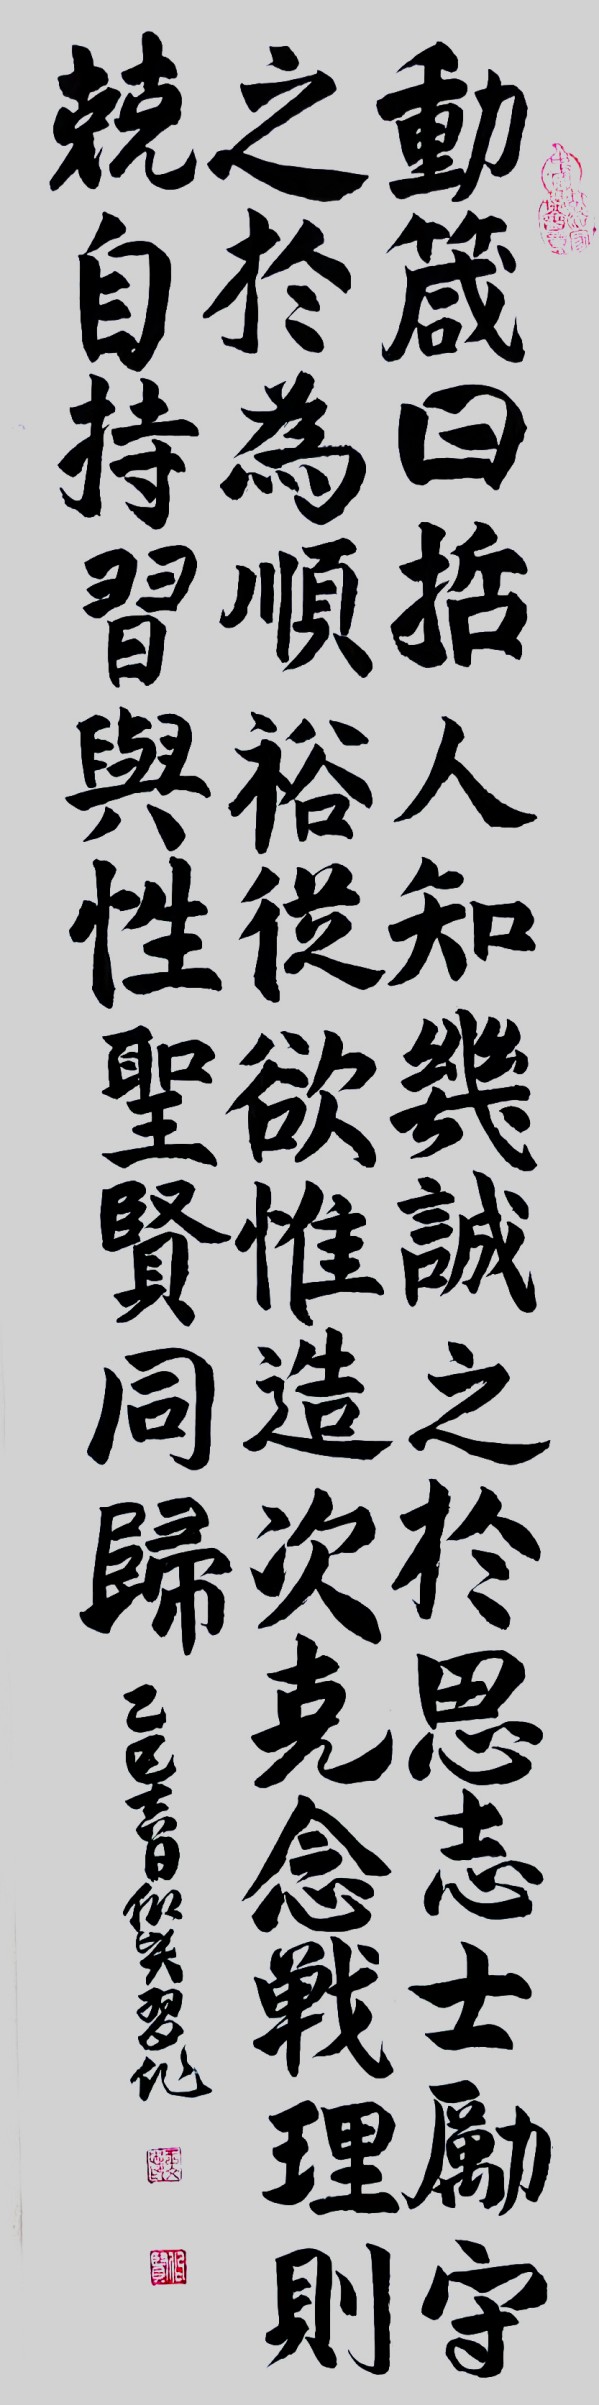 動箴曰哲人知幾誠之於思志士勵守
之於為順裕從欲惟造次克念戰理則
兢自持習與性聖賢同歸
乙巳吉日伯賢習作
伯賢